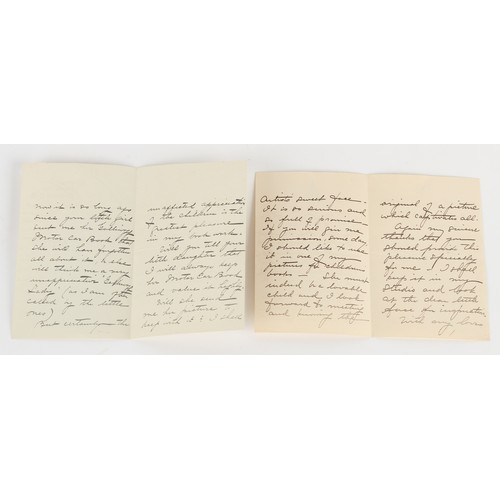 now it is so long ago
since your little girl
sent me her
Motor Car Book
she will have forgotten
all about it
will think me a very
unappreciative
Lady (as I am often
called by the little
ones)
But certainly the
unaffected appreciation
of the children is the
greatest pleasure
in my book work.
Will you tell your
little daughter that
I will always keep
her Motor Car Book
and value it highly
Will she send
me her picture to
keep with it & I shall
Artists sweet face.
It is so serious and
so full of promise.
If you will give me
permission, some day
I should like to use
it in one of my
pictures for childrens
books — She must
indeed be a lovable
child and I look
forward to meeting
and knowing the
original of a picture
which captivates all.
Again my sincere
thanks that you
should prove this
pleasure specially
to me. I shall
keep it in my
studio and look
at the dear little
face for inspiration
With my love